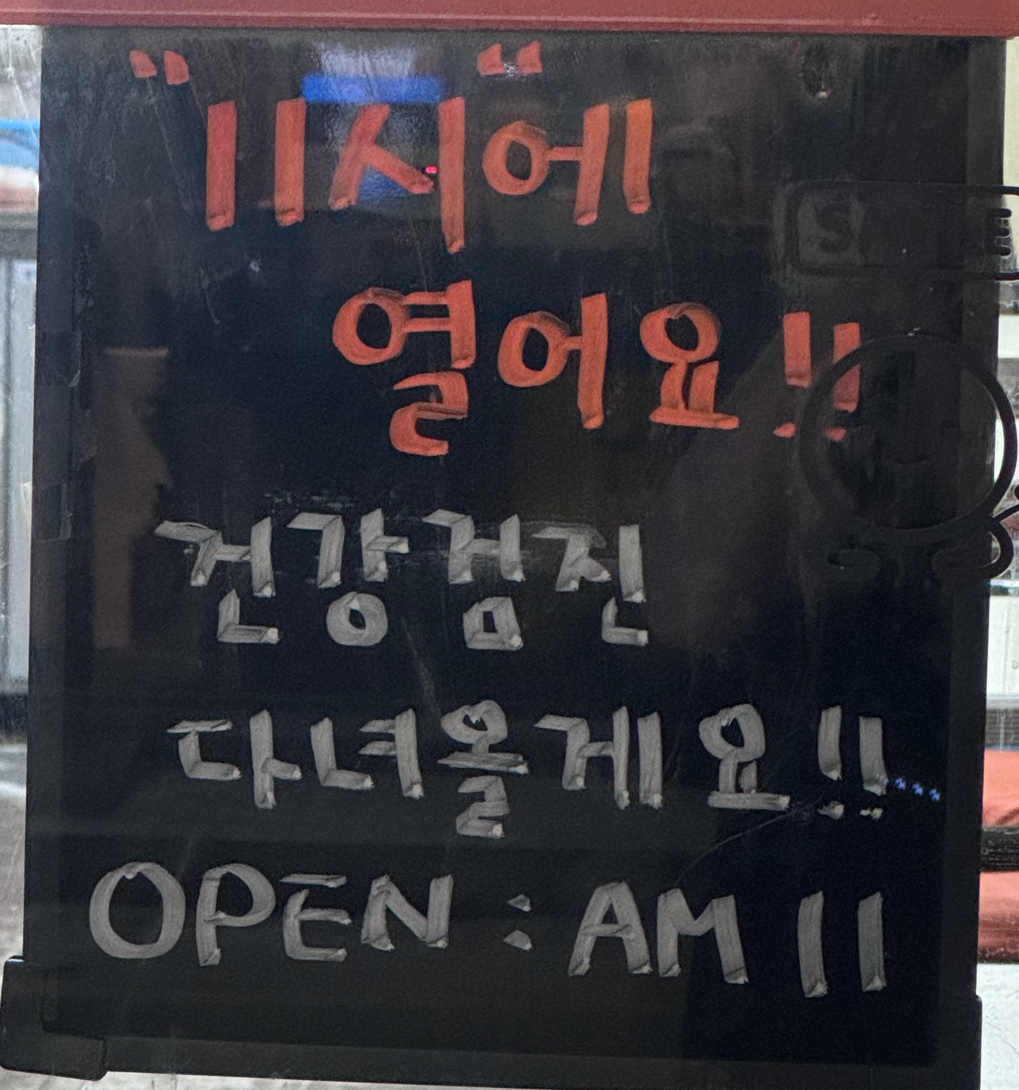 "11시에"
열어요!!
건강검진
다녀올게요!!
OPEN : AM 11